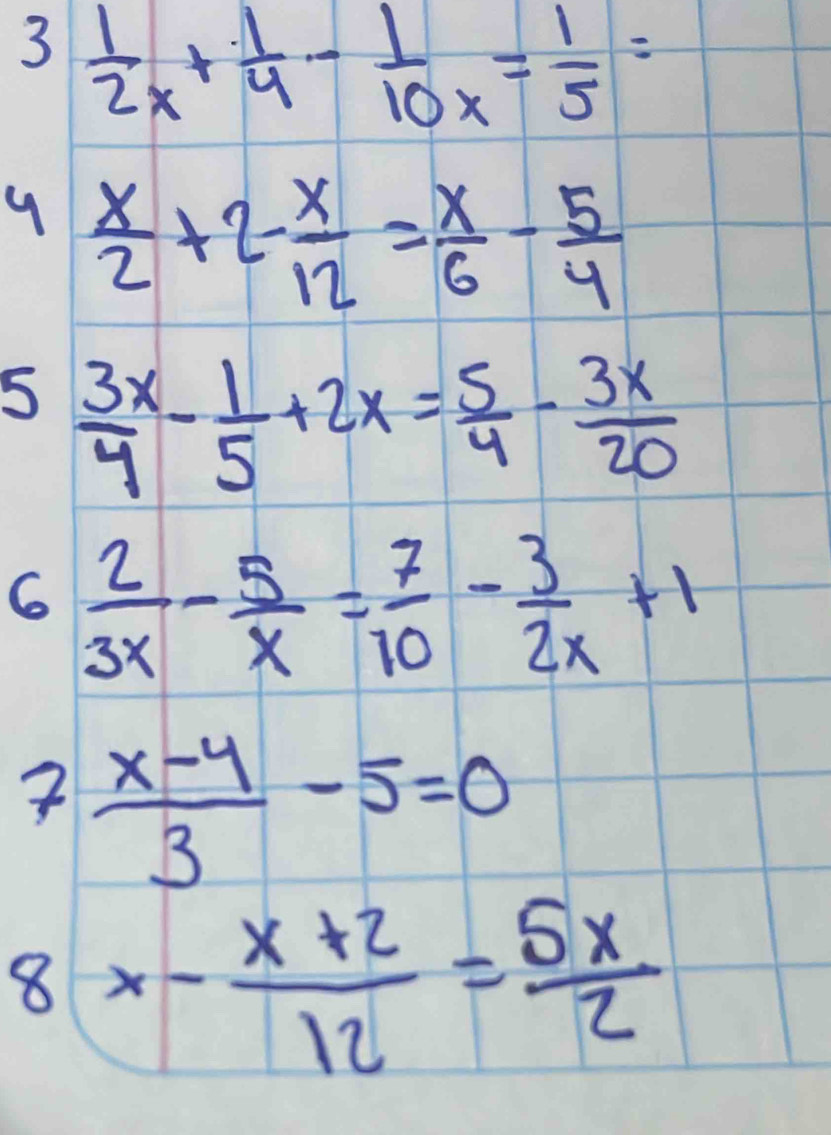 3 1/2x + 1/4 - 1/10x = 1/5 =
4 x/2 + 2 - x/12 = x/6 - 5/4
5 3x/4 - 1/5 + 2x = 5/4 - 3x/20
6 2/3x - 5/x = 7/10 - 3/2x + 1
7 x-4/3 - 5 = 0
8 x - x+2/12 = 5x/2